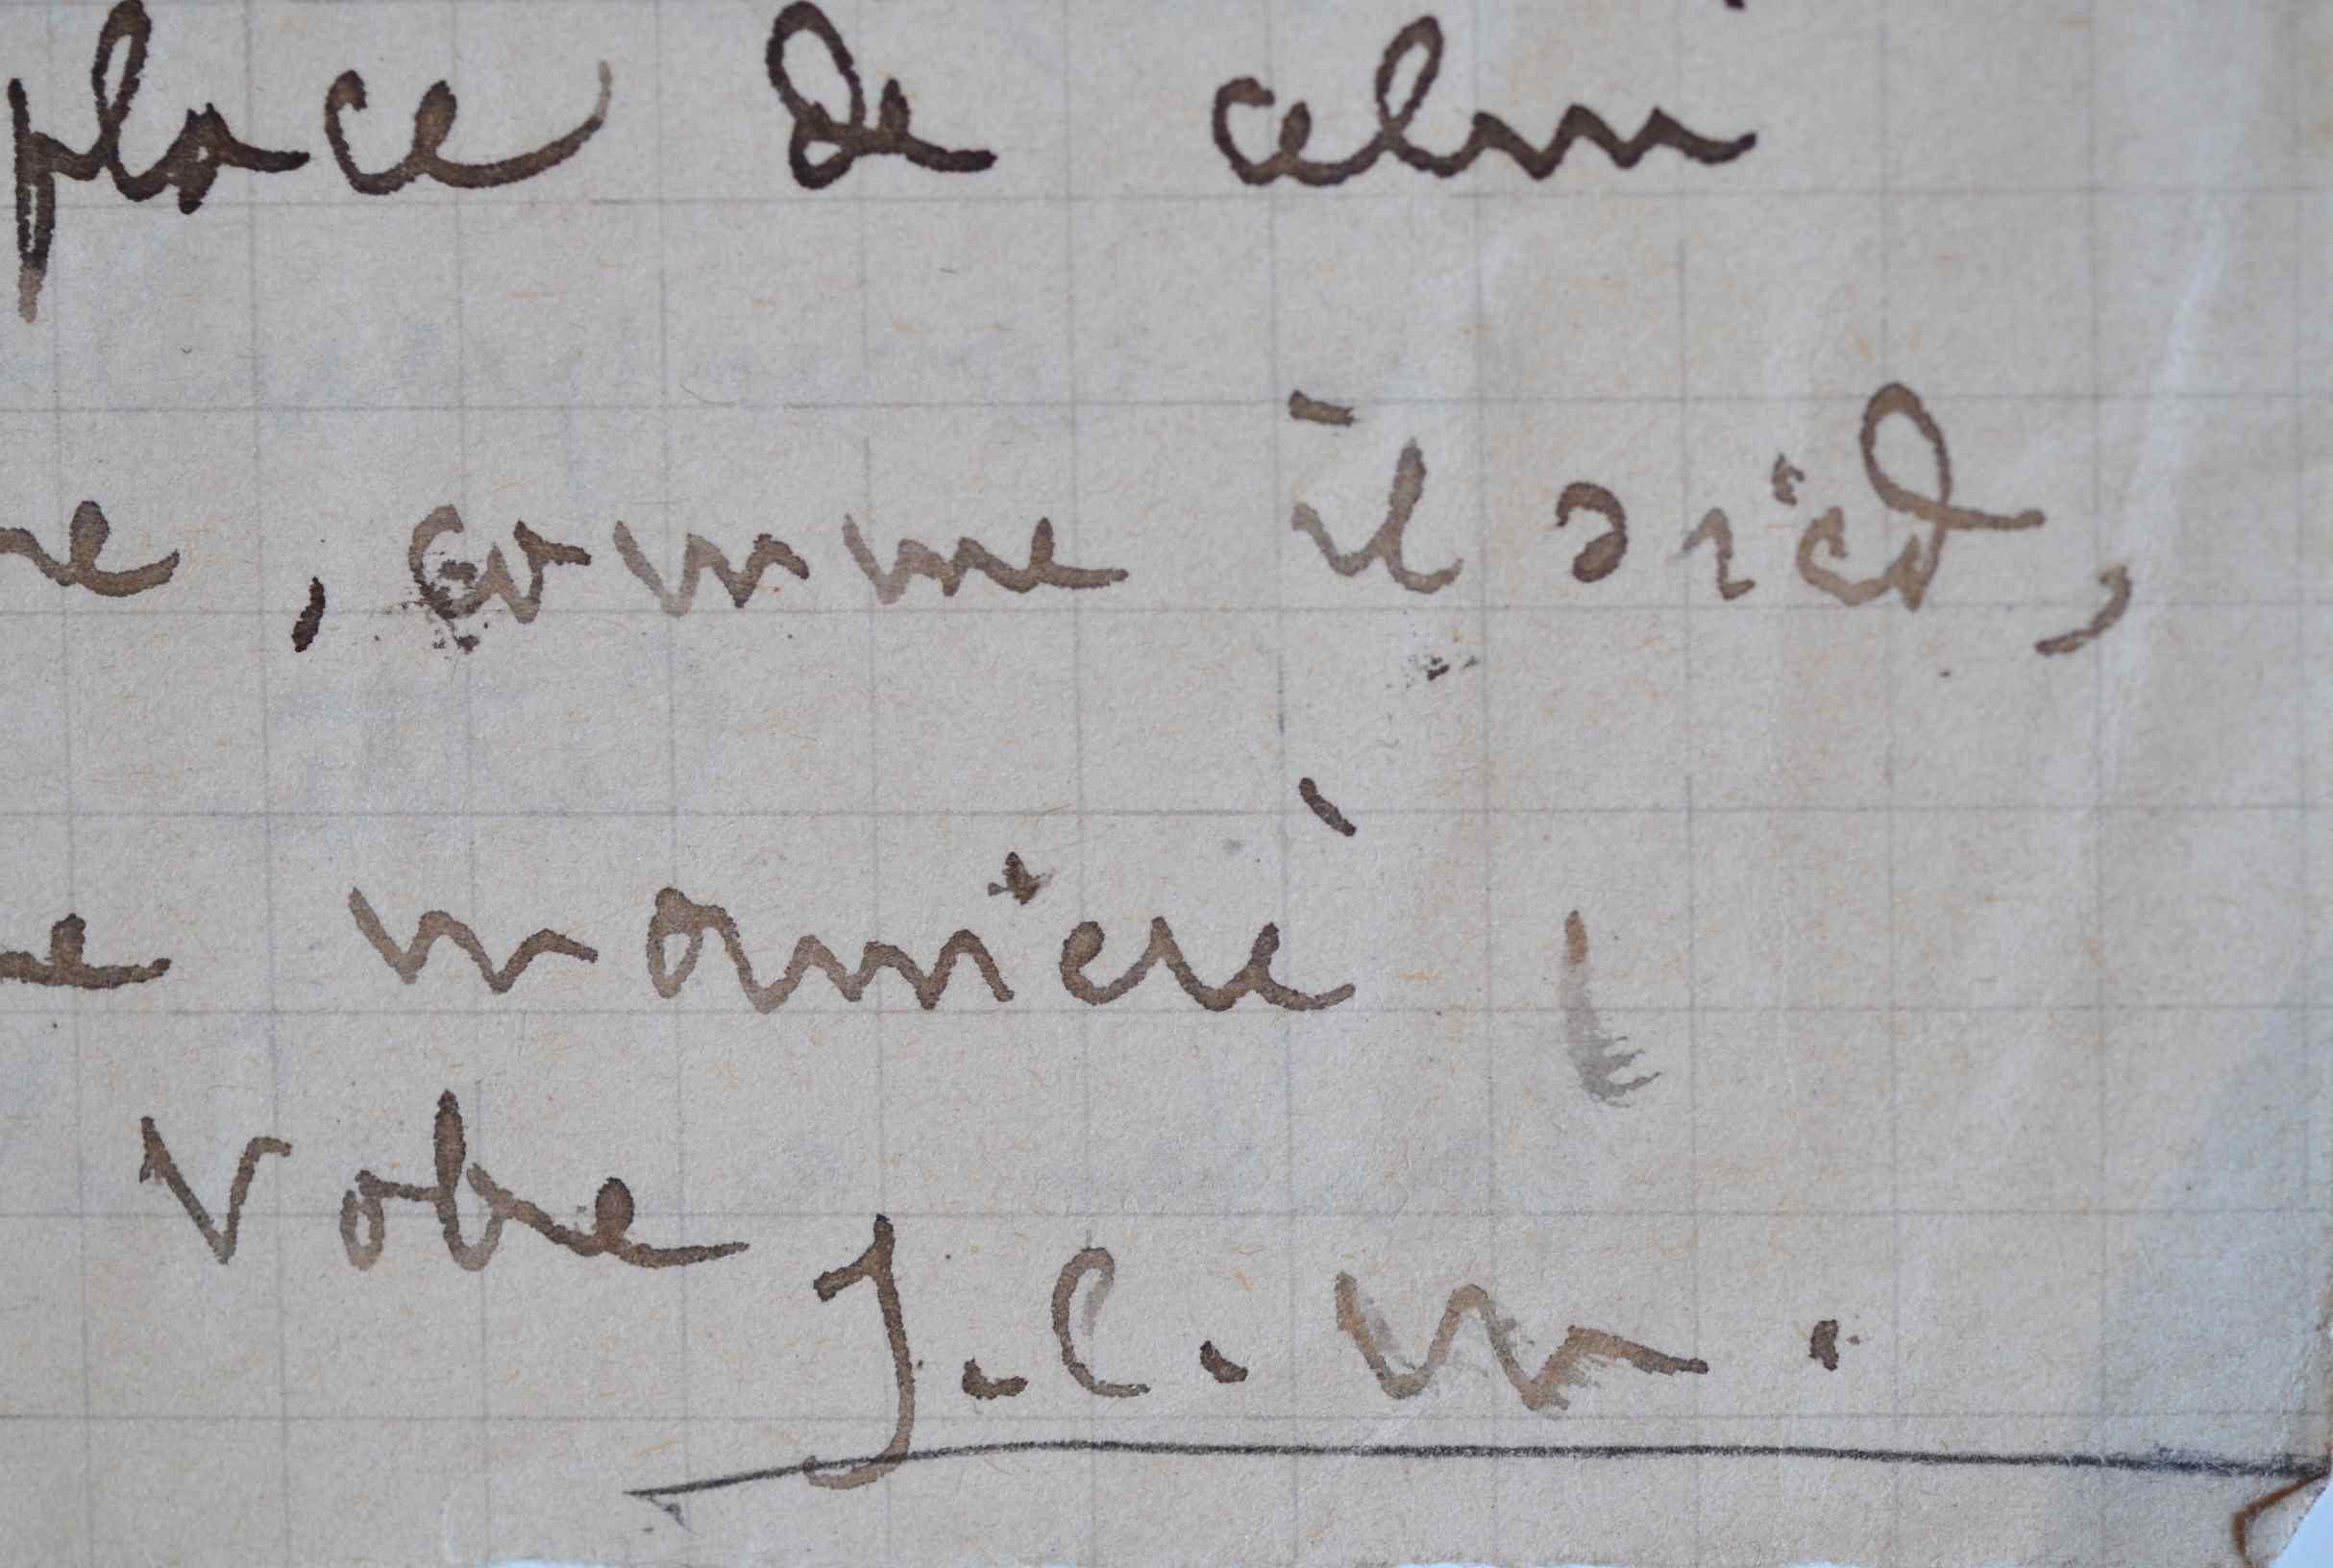 place de celui
re, comme il sied,
ne manière
Votre
J.C.M.